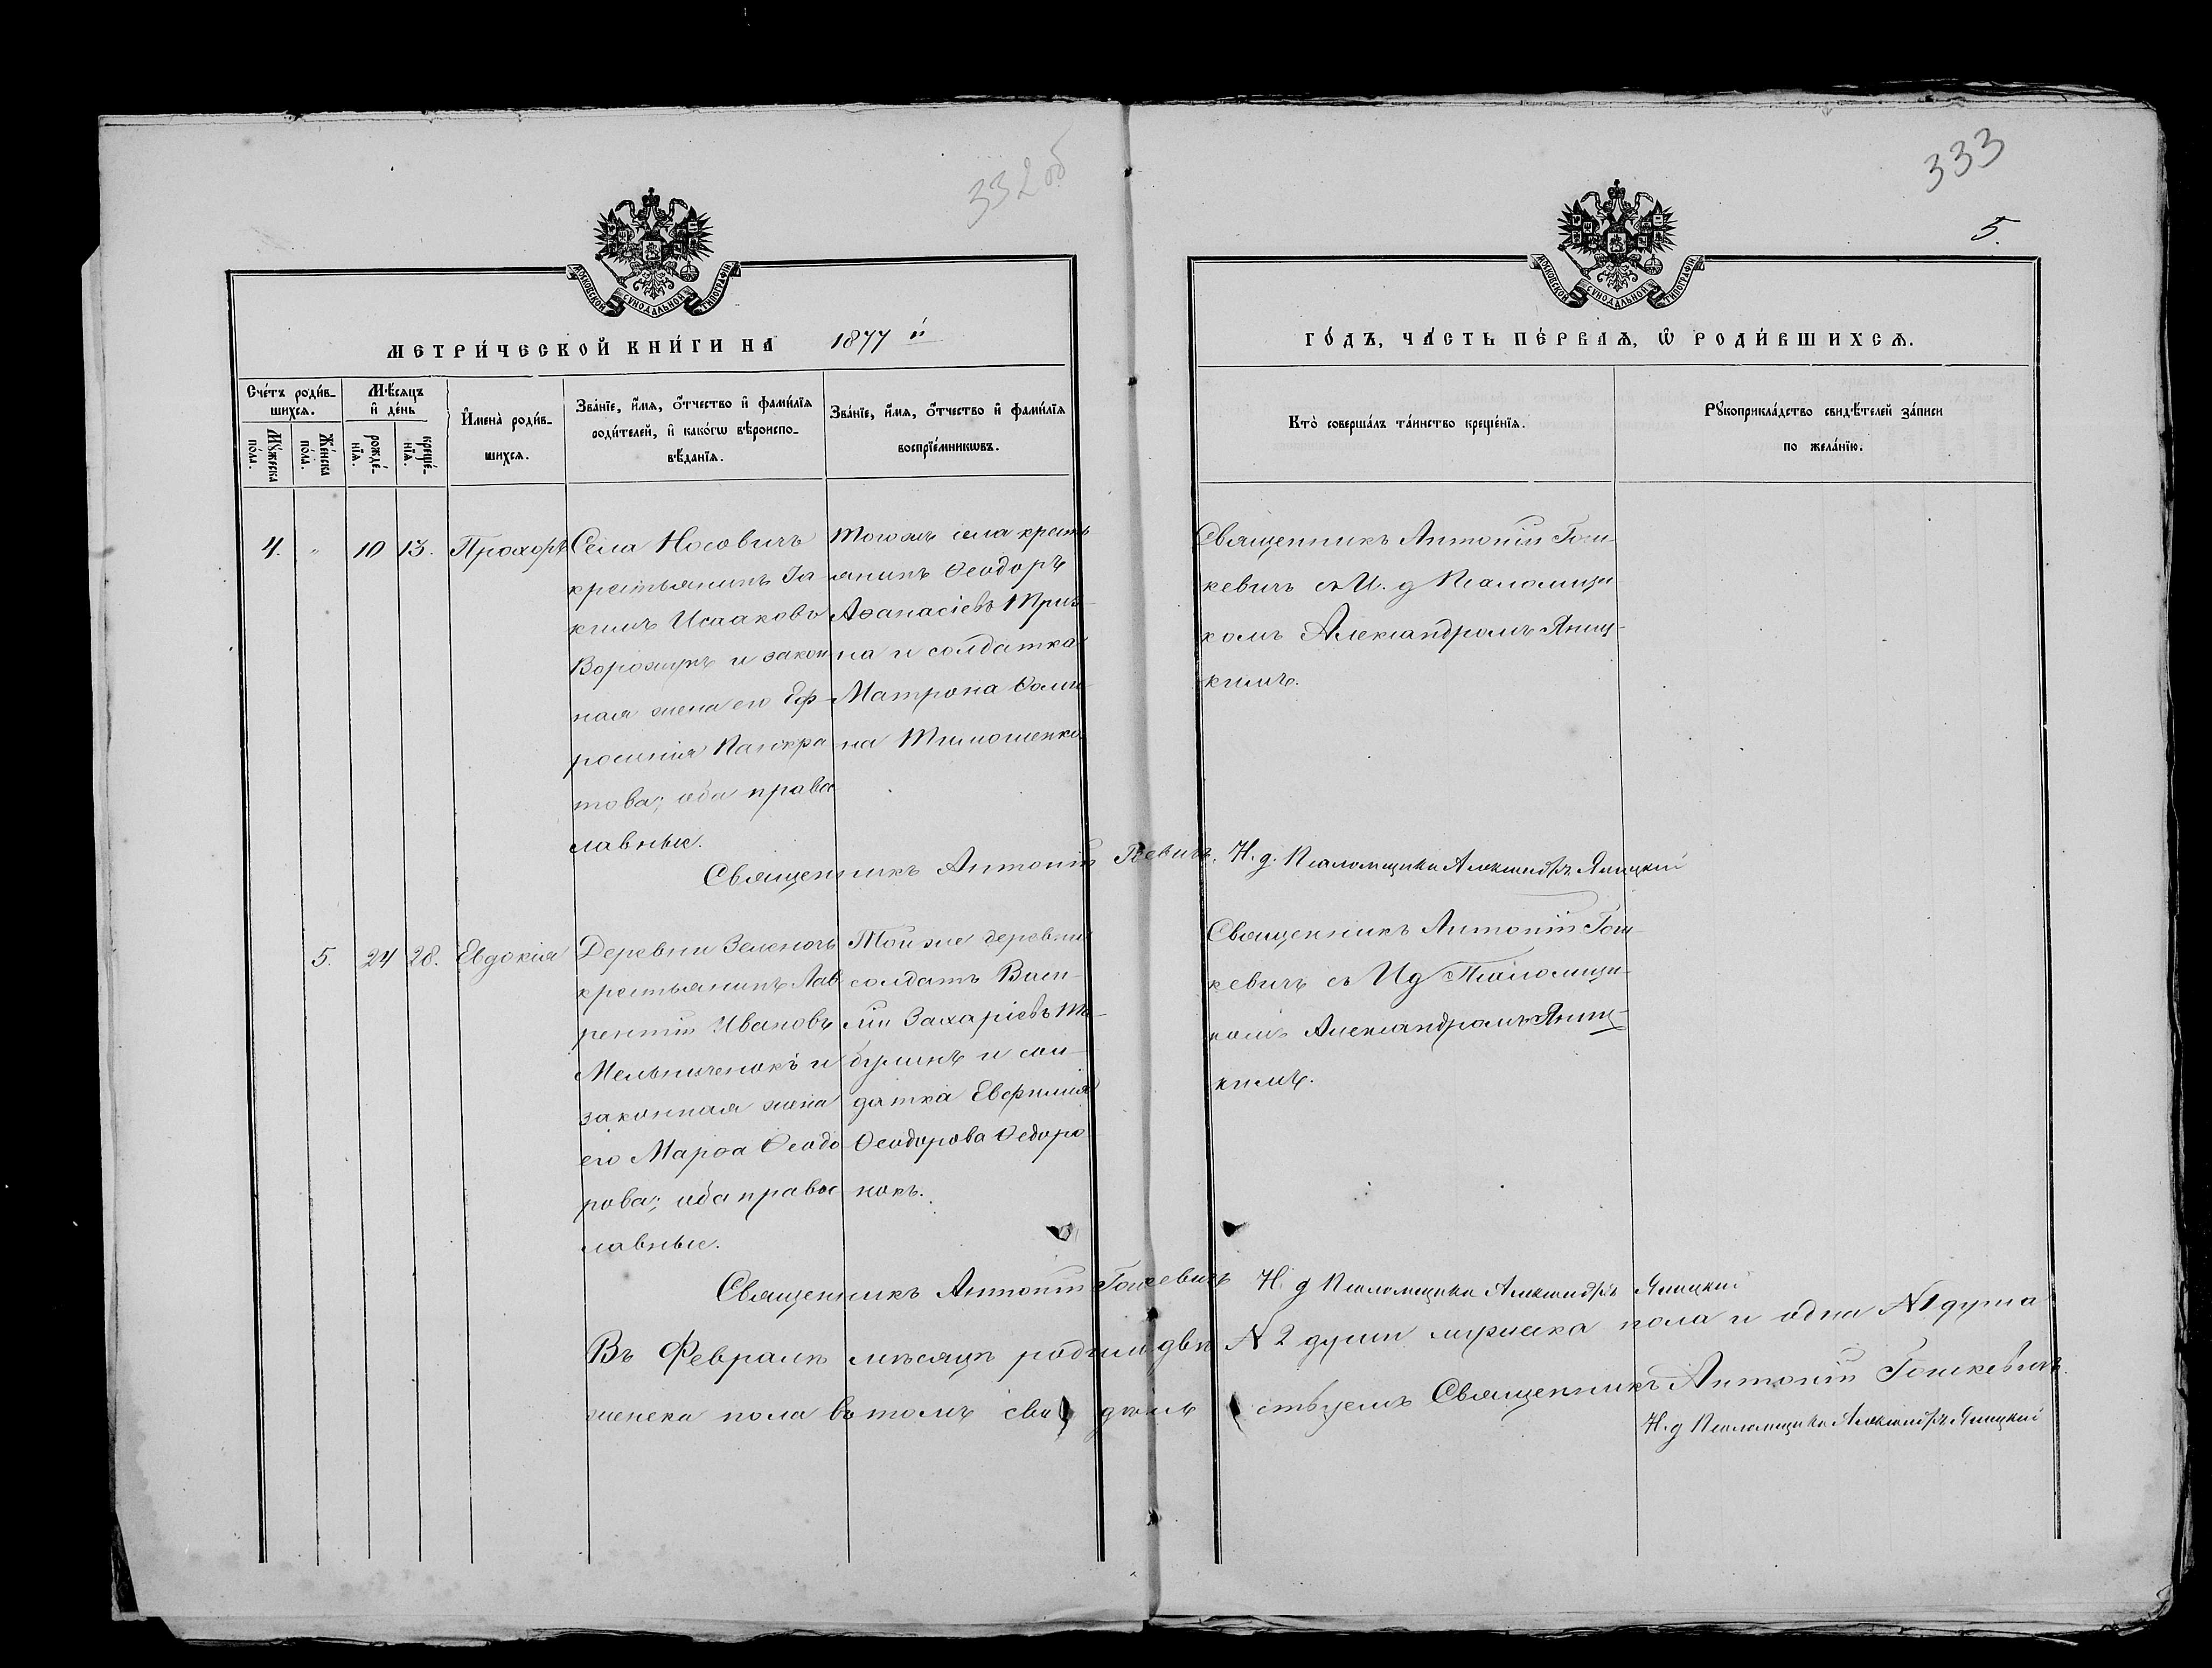 332 об
333
5.
МОСКОВСКОЙ СѴНОДАЛЬНОЙ ТИПОГРАФІИ
МОСКОВСКОЙ СѴНОДАЛЬНОЙ ТИПОГРАФІИ
МЕТРИ́ЧЕСКОЙ КНИ́ГИ НА 1877 й
ГО́ДЪ, ЧА́СТЬ ПЕ́РВАѦ, Ѡ РОДИ́ВШИХСѦ.
Сче́тъ роди́в-
шихсѧ.
Мꙋ́жеска
по́ла.
Же́нска
по́ла.
Мѣ́сѧцъ
и҆ де́нь
рожде́-
нїѧ.
креще́-
нїѧ.
И҆мена̀ роди́в-
шихсѧ.
Зва́нїе, и҆́мѧ, ѻ҆́тчество и҆ фами́лїѧ
роди́телей, и҆ како́гѡ вѣроиспо-
вѣ́данїѧ.
Зва́нїе, и҆́мѧ, ѻ҆́тчество и҆ фами́лїѧ
воспрїе́мникѡвъ.
Кто̀ соверша́лъ та́инство креще́нїѧ.
Рꙋкоприкла́дство свидѣ́телей за́писи
по жела́нїю.
4. " 10 13. Прохоръ
Села Носовичъ
крестьянинъ Іа-
кимъ Исааковъ
Ворожунъ и закон
ная жена его Еф-
росинія Панкра
това; оба правос
лавные.
Того же села крестъ
янинъ Ѳеодоръ
Аѳанасіевъ
на и солдатка
Матрона Ѳоми-
на Тимошенко.
Священникъ Антоній Гош-
кевичъ съ И. д Псаломщи
комъ Александромъ Яниц-
кимъ.
Священникъ Антоній Н. д. Псаломщика Александръ Яницкій
5. 24 28. Евдокія
Деревни Зеленочь
крестьянинъ Лав
рентій Ивановъ
Мельниченокъ и
законная жена
его Марѳа Ѳеодо
рова; оба правос
лавные.
Той же деревни
солдатъ Васи-
лій Захаріевъ
и сол-
датка Евфимія
Ѳеодорова Ѳедоро
нокъ.
Священникъ Антоній Гош-
кевичъ съ И д Псаломщи-
комъ Александромъ Яниц-
кимъ.
Священникъ Антоній Гошкевичъ Н. д Псаломщика Александръ Яницкій
Въ Февралѣ мѣсяцѣ родили двѣ N 2 души мужеска пола и одна N 1 душа
женска пола въ томъ свидѣтельствуемъ Священникъ Антоній Гошкевичъ.
Н. д Псаломщика Александръ Яницкій